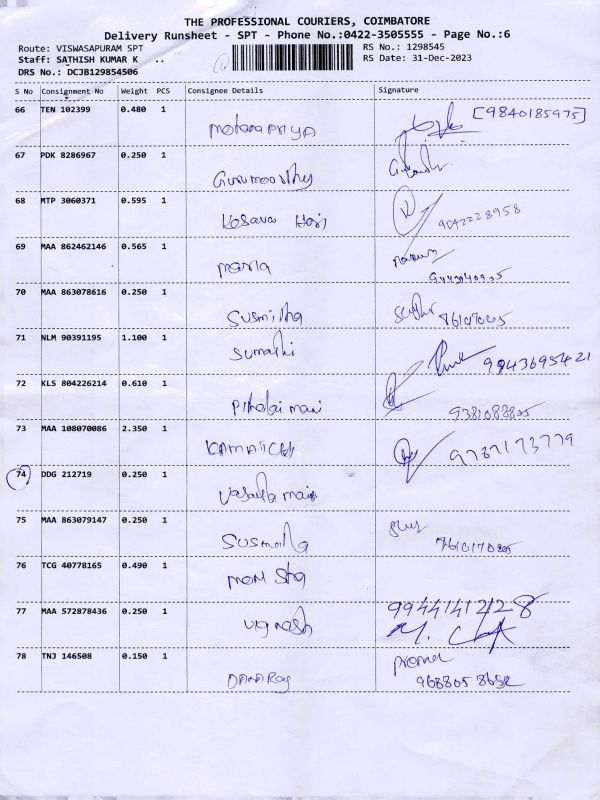 THE PROFESSIONAL COURIERS, COIMBATORE
Delivery Runsheet - SPT - Phone No.:0422-3505555 - Page No.:6
Route: VISWASAPURAM SPT
RS No.: 1298545
Staff: SATHISH KUMAR K ..
RS Date: 31-Dec-2023
DRS No.: DCJB129854506
S No Consignment No Weight PCS Consignee Details Signature
66 TEN 102399 0.480 1 [9840185975]
67 PDK 8286967 0.250 1
Gurumoorthy
68 MTP 3060371 0.595 1
Kesava Hari 9042228958
69 MAA 862462146 0.565 1
Maria
70 MAA 863078616 0.250 1
Susmitha
71 NLM 90391195 1.100 1
Sumathi 9943695421
72 KLS 804226214 0.610 1
73 MAA 108070086 2.350 1
KAMATCHI 9787173779
74 DDG 212719 0.250 1
75 MAA 863079147 0.250 1
Susmitha
76 TCG 40778165 0.490 1
77 MAA 572878436 0.250 1 9944141228
Vignesh
78 TNJ 146508 0.150 1